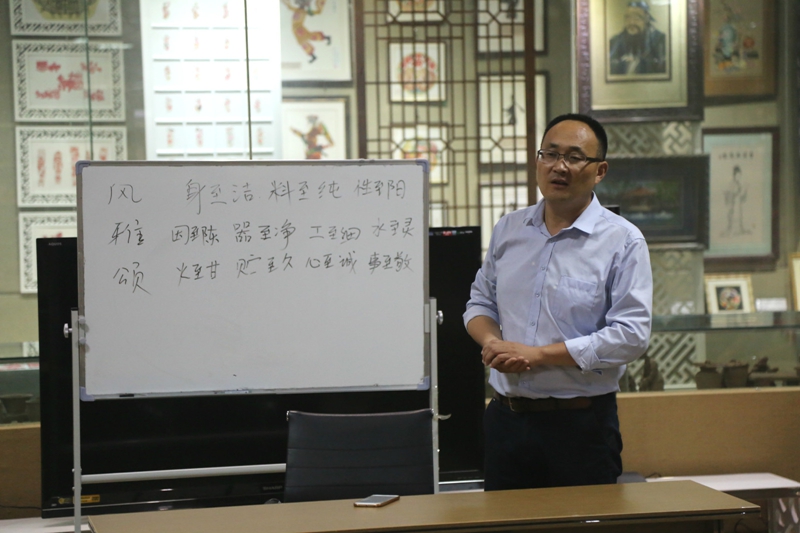 风 身至洁 料至纯 性至阳
雅 因至陈 器至净 工至细 水至灵
颂 火至甘 贮至久 心至诚 事至敬